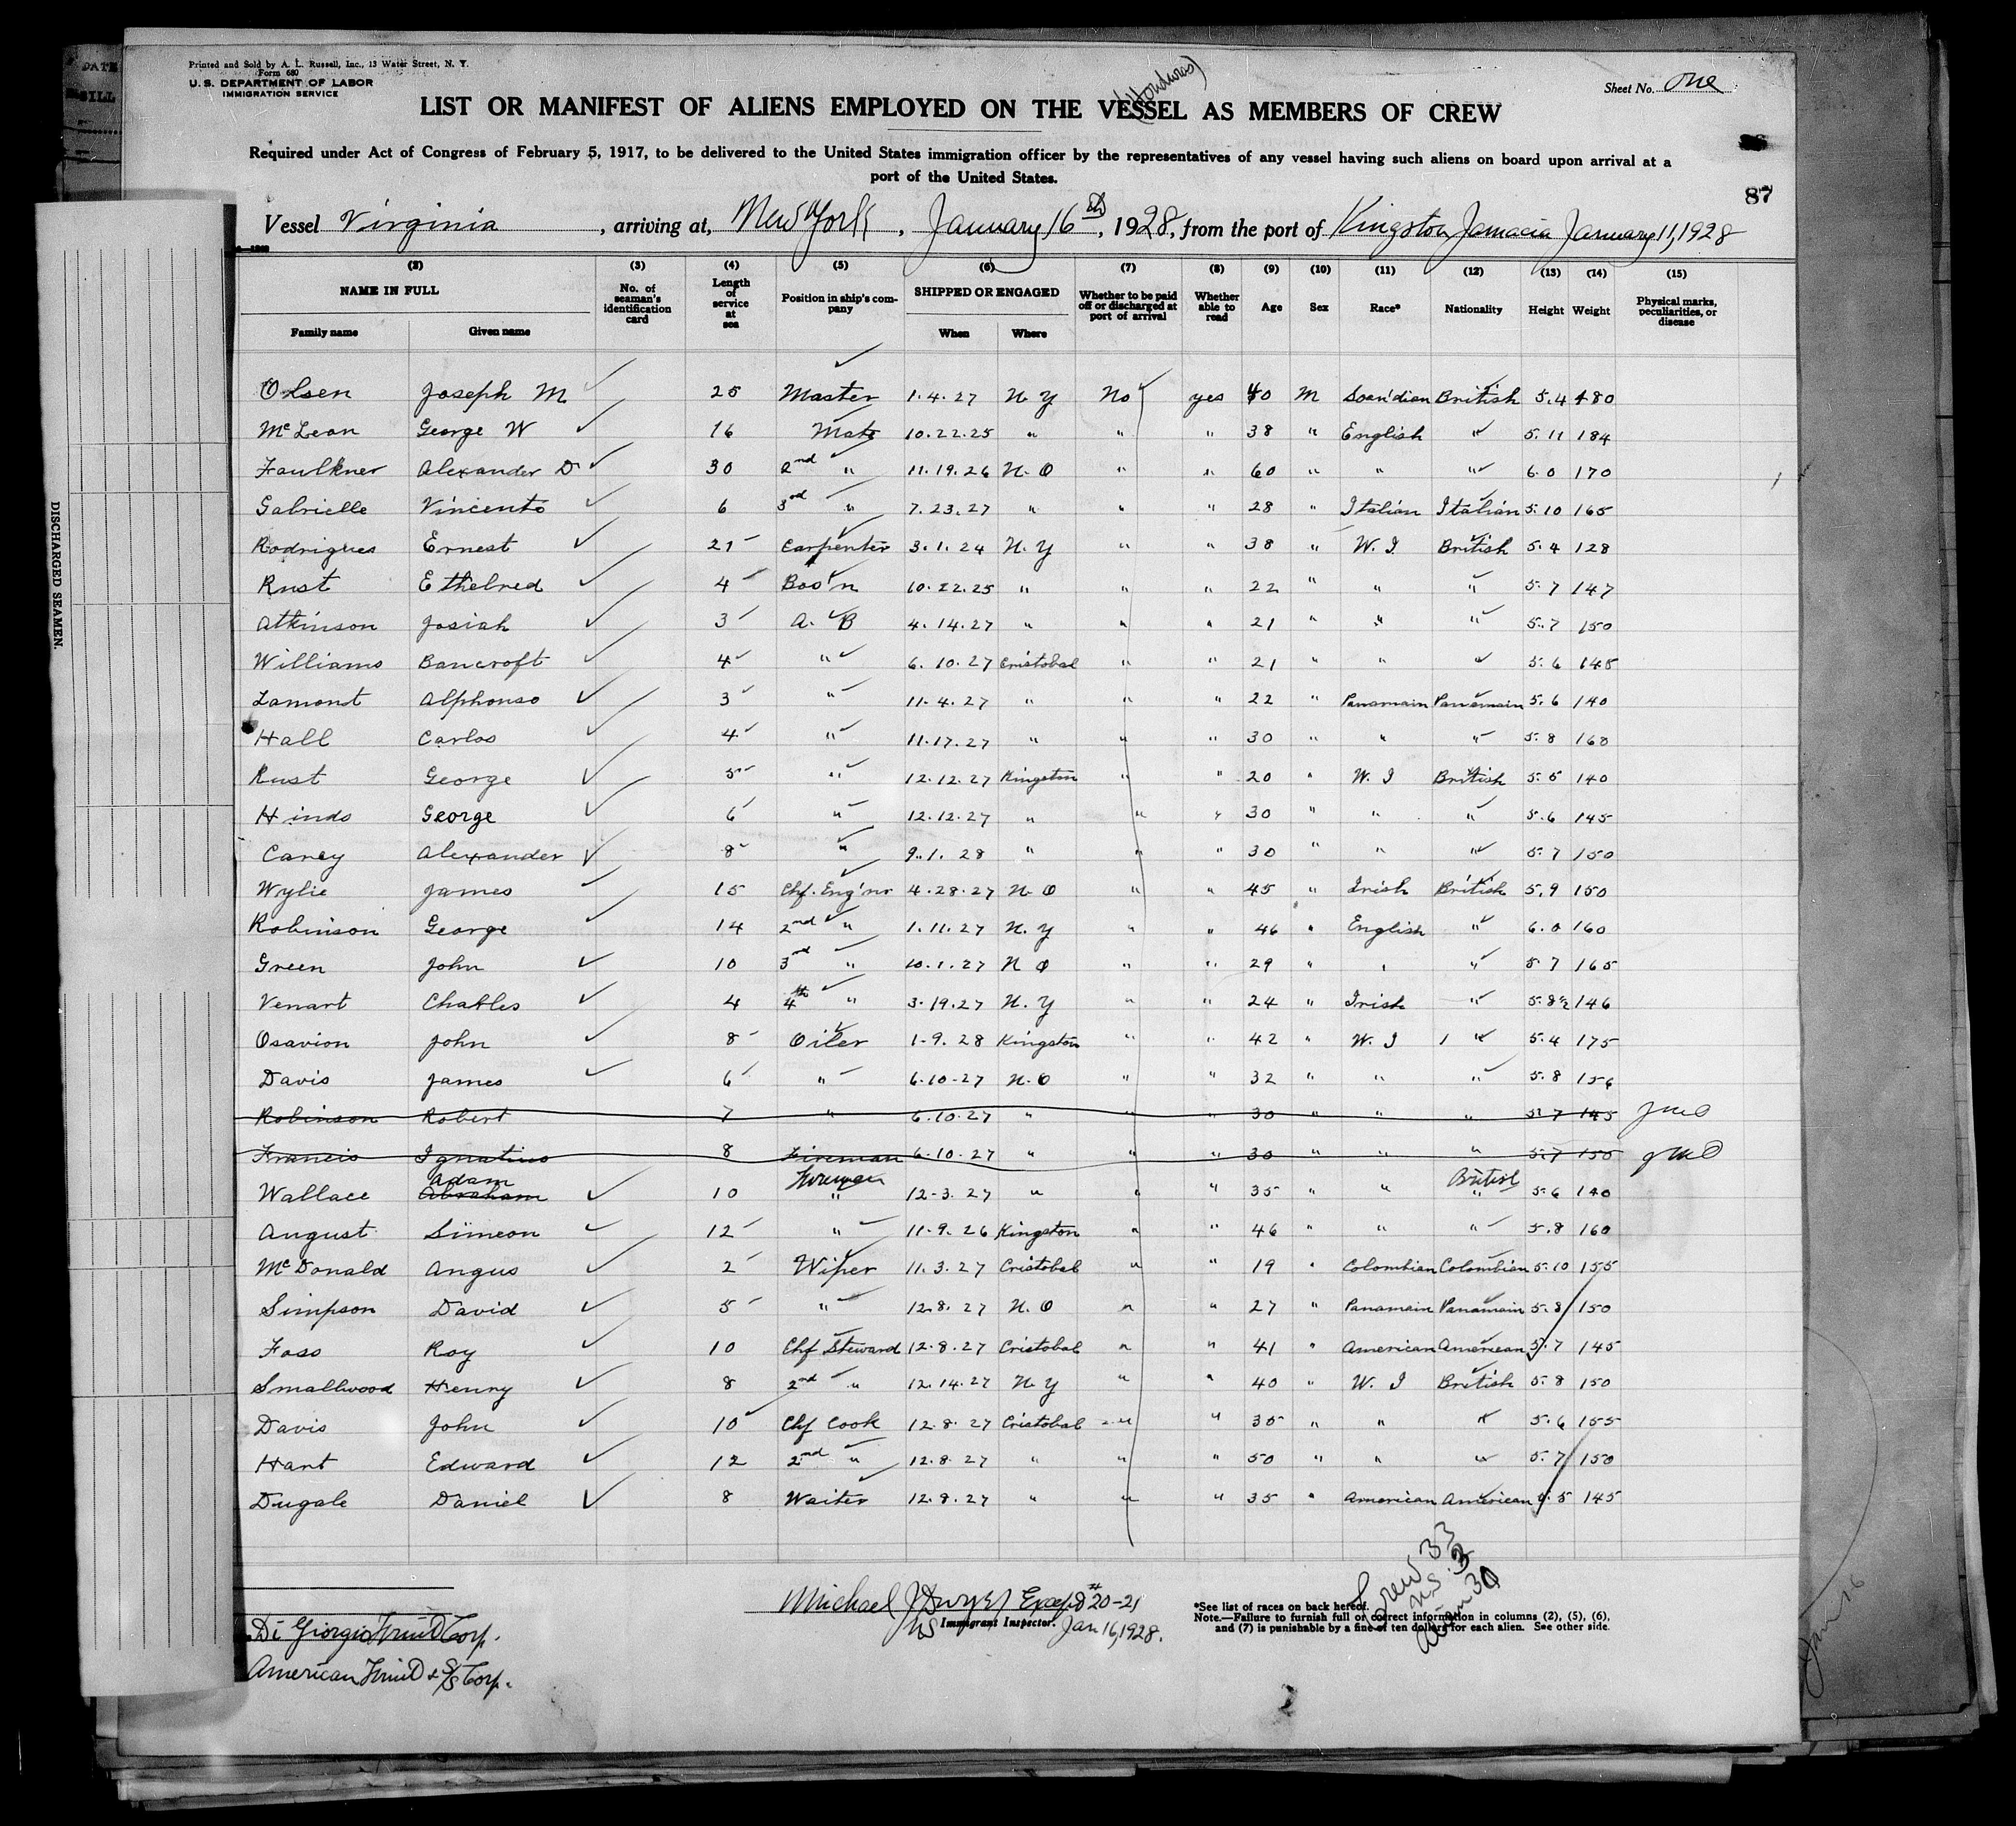 DATE
Printed and Sold by A. L. Russell, Inc., 13 Water Street, N. Y.
Form 680
U. S. DEPARTMENT OF LABOR
IMMIGRATION SERVICE
(Honduras)
Sheet No. One
LIST OR MANIFEST OF ALIENS EMPLOYED ON THE VESSEL AS MEMBERS OF CREW
Required under Act of Congress of February 5, 1917, to be delivered to the United States immigration officer by the representatives of any vessel having such aliens on board upon arrival at a
port of the United States.
87
Vessel Virginia, arriving at, New York, January 16th, 1928, from the port of Kingston Jamacia January 11, 1928
(2) (3) (4) (5) (6) (7) (8) (9) (10) (11) (12) (13) (14) (15)
NAME IN FULL No. of seaman's identification card Length of service at sea Position in ship's company SHIPPED OR ENGAGED Whether to be paid off or discharged at port of arrival Whether able to read Age Sex Race* Nationality Height Weight Physical marks, peculiarities, or disease
Family name Given name When Where
Olsen Joseph M 25 Master 1.4.27 N.Y No yes 40 M Scan'dian British 5.4 180
McLean George W 16 Mate 10.22.25 " " " 38 " English " 5.11 184
Faulkner Alexander D 30 2nd " 11.19.26 N.O " " 60 " " " 6.0 170
Gabrielle Vincento 6 3rd " 7.23.27 " " " 28 " Italian Italian 5.10 165
Rodrigues Ernest 21 Carpenter 3.1.24 N.Y " " 38 " W.I British 5.4 128
Rust Ethelred 4 Bos'n 10.22.25 " " " 22 " " " 5.7 147
Atkinson Josiah 3 A.B 4.14.27 " " " 21 " " " 5.7 150
Williams Bancroft 4 " 6.10.27 Cristobal " " 21 " " " 5.6 145
Lamont Alphonso 3 " 11.4.27 " " " 22 " Panamain Panamain 5.6 140
Hall Carlos 4 " 11.17.27 " " " 30 " " " 5.8 168
Rust George 5 " 12.12.27 Kingston " " 20 " W.I British 5.5 140
Hinds George 6 " 12.12.27 " " " 30 " " " 5.6 145
Carey Alexander 8 " 9.1.28 " " " 30 " " " 5.7 150
Wylie James 15 Chf. Eng'nr 4.28.27 N.O " " 45 " Irish British 5.9 150
Robinson George 14 2nd " 1.11.27 N.Y " " 46 " English " 6.0 160
Green John 10 3rd " 10.1.27 N O " " 29 " " " 5.7 165
Venart Charles 4 4th " 3.19.27 N.Y " " 24 " Irish " 5.8½ 146
Osavion John 8 Oiler 1.9.28 Kingston " " 42 " W.I " 5.4 175
Davis James 6 " 6.10.27 N.O " " 32 " " " 5.8 156
Robinson Robert 7 " 6.10.27 " " " 30 " " " 5.7 145
Francis Ignatius 8 Fireman 6.10.27 " " " 30 " " " 5.7 155
Adam Fireman British
Wallace Abraham 10 " 12.3.27 " " " 35 " " " 5.6 140
August Simeon 12 " 11.9.26 Kingston " " 46 " " " 5.8 160
McDonald Angus 2 Wiper 11.3.27 Cristobal " " 19 " Colombian Colombian 5.10 155
Simpson David 5 " 12.8.27 N.O " " 27 " Panamain Panamain 5.8 150
Foss Roy 10 Chf Steward 12.8.27 Cristobal " " 41 " American American 5.7 145
Smallwood Henry 8 2nd " 12.14.27 N.Y " " 40 " W.I British 5.8 150
Davis John 10 Chf Cook 12.8.27 Cristobal " " 35 " " " 5.6 155
Hart Edward 12 2nd " 12.8.27 " " " 50 " " " 5.7 150
Dugale Daniel 8 Waiter 12.8.27 " " " 35 " American American 5.5 145
DISCHARGED SEAMEN.
Crew 33
U.S. 3
Alien 30
Michael J Dwyer Except # 20-21
Immigrant Inspector. Jan 16, 1928.
*See list of races on back hereof.
Note.—Failure to furnish full or correct information in columns (2), (5), (6),
and (7) is punishable by a fine of ten dollars for each alien. See other side.
Di Giorgio Fruit Corp.
American Fruit & S/S Corp.
Jan 16